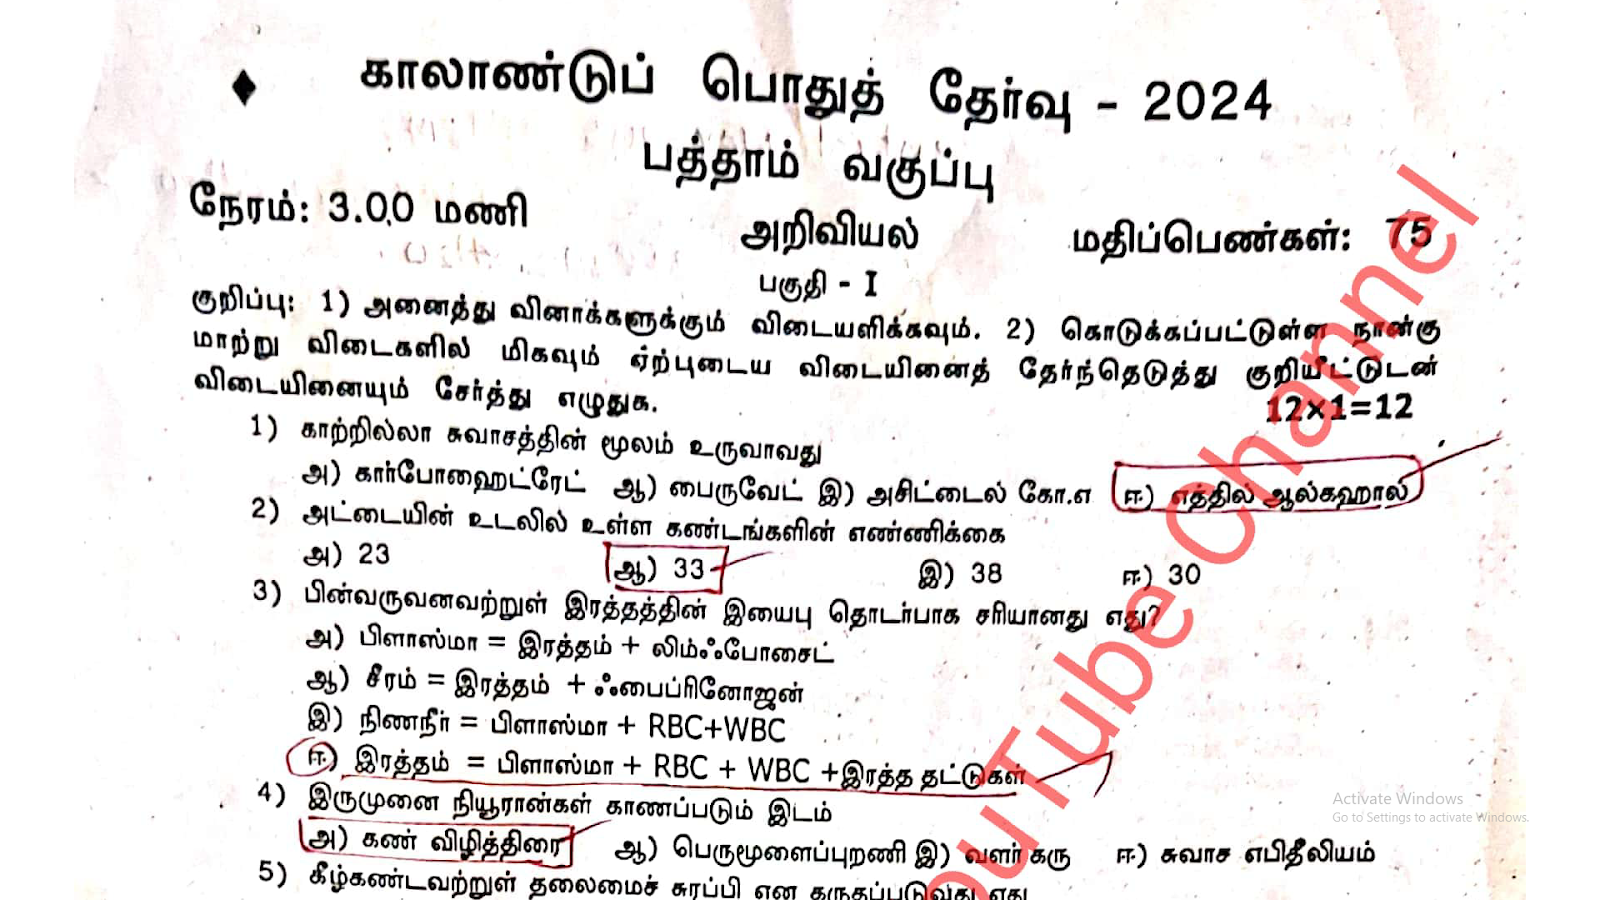 காலாண்டுப் பொதுத் தேர்வு - 2024
பத்தாம் வகுப்பு
நேரம்: 3.00 மணி அறிவியல் மதிப்பெண்கள்: 75
பகுதி - I
குறிப்பு: 1) அனைத்து வினாக்களுக்கும் விடையளிக்கவும். 2) கொடுக்கப்பட்டுள்ள நான்கு
மாற்று விடைகளில் மிகவும் ஏற்புடைய விடையினைத் தேர்ந்தெடுத்து குறியீட்டுடன்
விடையினையும் சேர்த்து எழுதுக. 12×1=12
1) காற்றில்லா சுவாசத்தின் மூலம் உருவாவது
அ) கார்போஹைட்ரேட் ஆ) பைருவேட் இ) அசிட்டைல் கோ.எ ஈ) எத்தில் ஆல்கஹால்
2) அட்டையின் உடலில் உள்ள கண்டங்களின் எண்ணிக்கை
அ) 23 ஆ) 33 இ) 38 ஈ) 30
3) பின்வருவனவற்றுள் இரத்தத்தின் இயைபு தொடர்பாக சரியானது எது?
அ) பிளாஸ்மா = இரத்தம் + லிம்ஃபோசைட்
ஆ) சீரம் = இரத்தம் + ஃபைப்ரினோஜன்
இ) நிணநீர் = பிளாஸ்மா + RBC+WBC
ஈ) இரத்தம் = பிளாஸ்மா + RBC + WBC +இரத்த தட்டுகள்
4) இருமுனை நியூரான்கள் காணப்படும் இடம்
அ) கண் விழித்திரை ஆ) பெருமூளைப்புறணி இ) வளர் கரு ஈ) சுவாச எபிதீலியம்
5) கீழ்கண்டவற்றுள் தலைமைச் சுரப்பி என கருதப்படுவது எது
YouTube Channel
Activate Windows
Go to Settings to activate Windows.